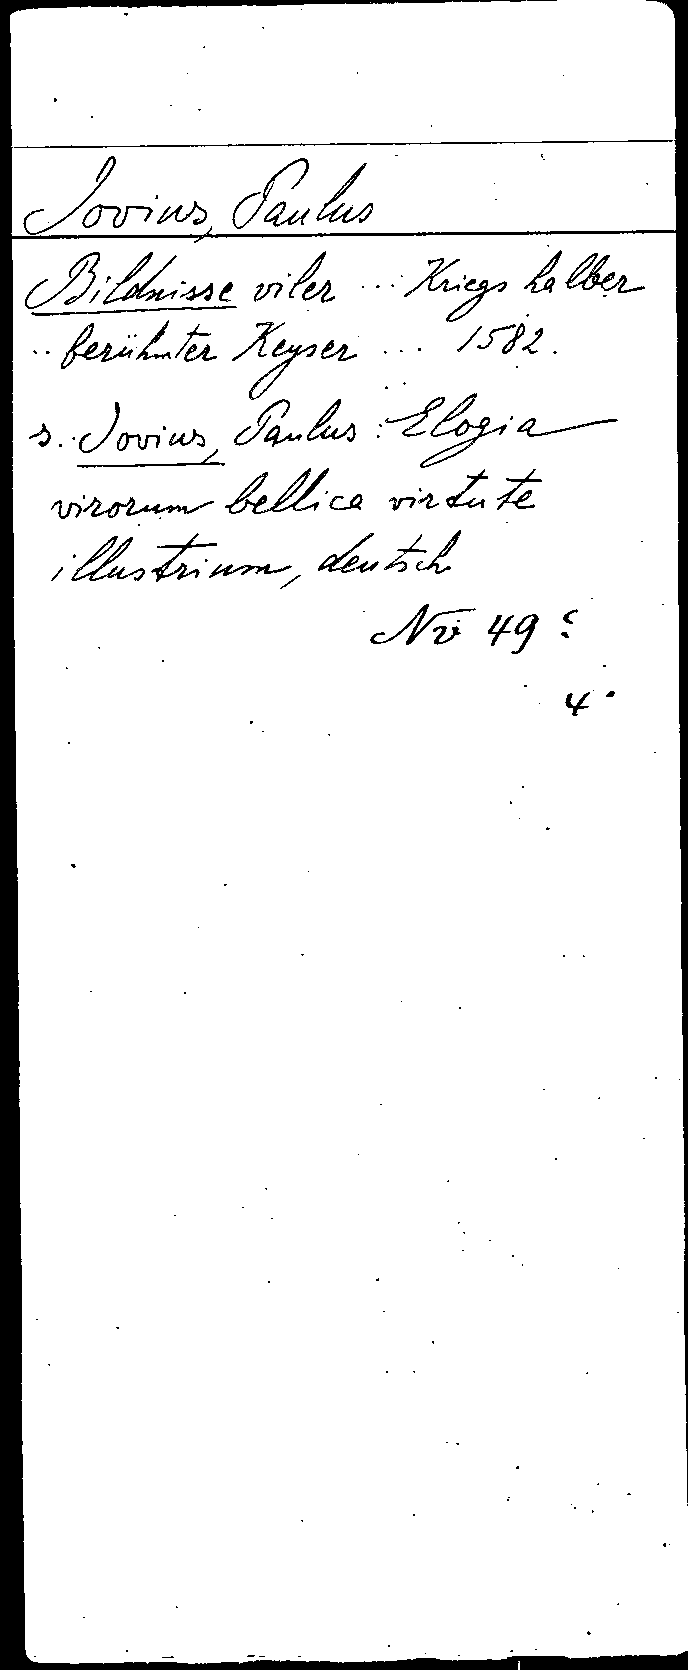 Jovius, Paulus
Bildnisse viler ... Kriegs halber
.. berühmter Keyser ... 1582.
s. Jovius, Paulus: Elogia
virorum bellica virtute
illustrium, deutsch
49
4°